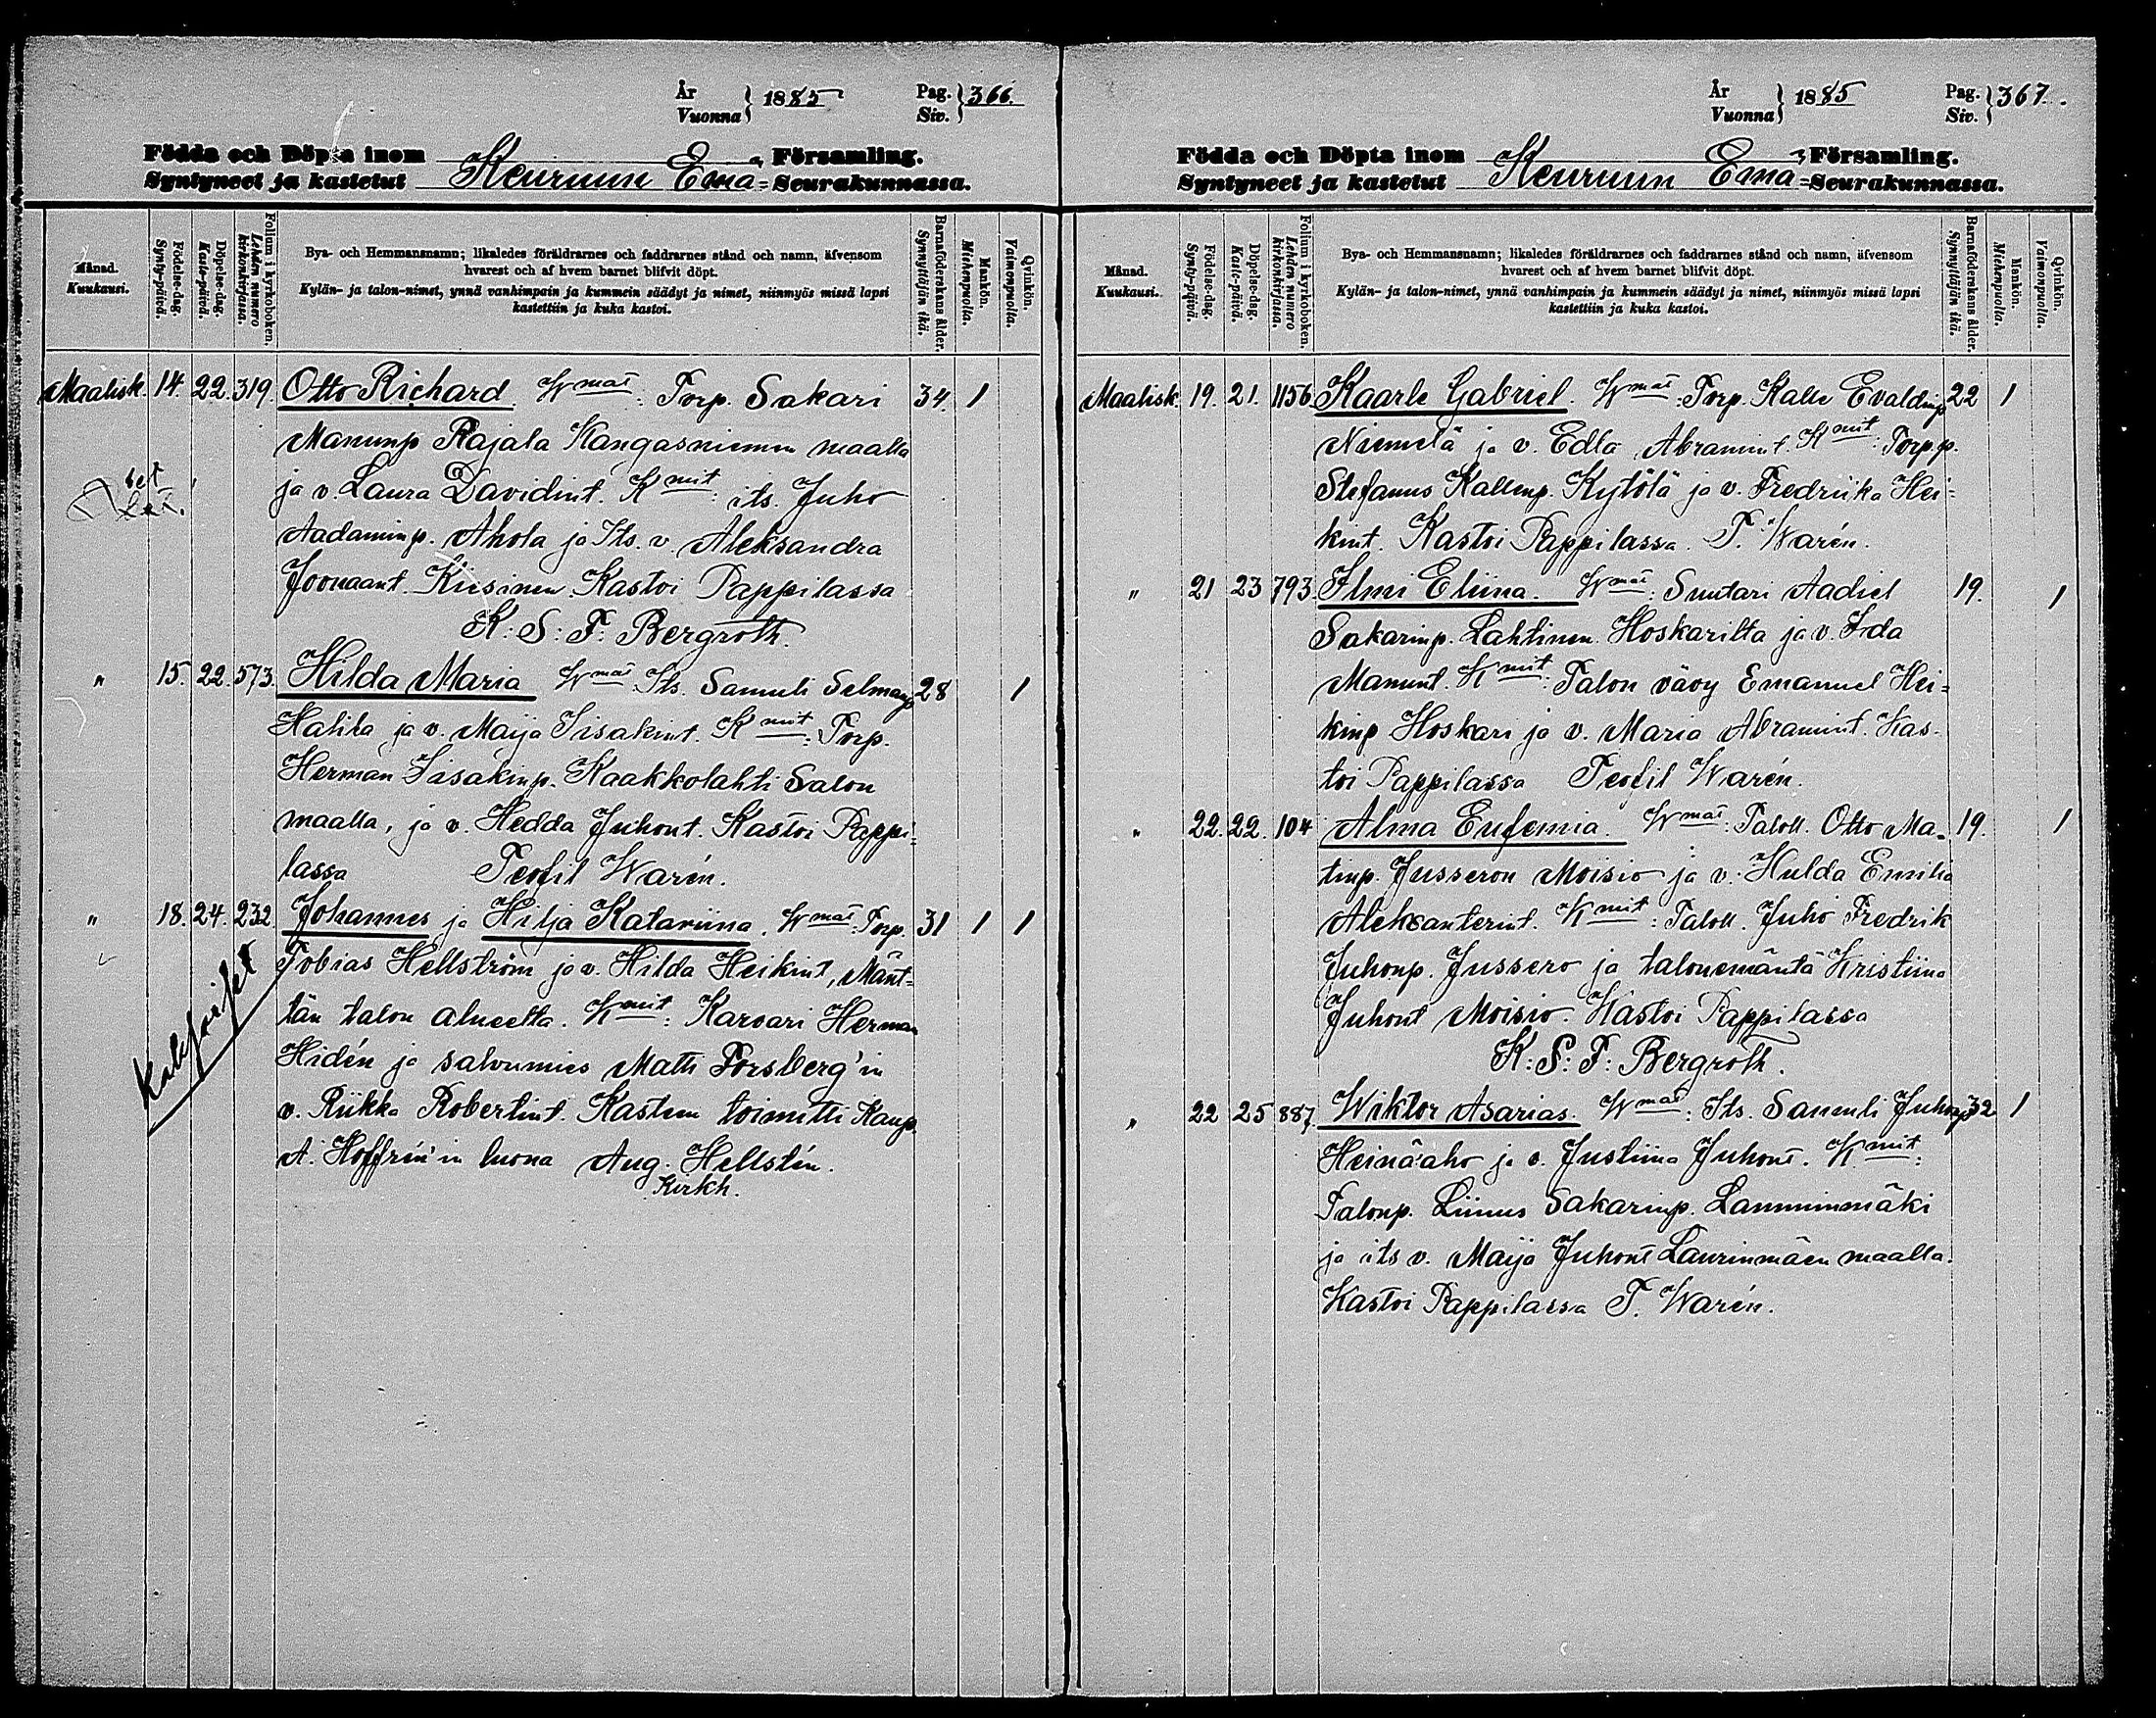 År
Vuonna } 1885 Pag.
Siv. } 366.
Födda och Döpta inom Församling.
Syntyneet ja kastetut Keuruun Emä= Seurakunnassa.
Månad.
Kuukausi.
Födelse-dag.
Synty-päivä.
Döpelse-dag.
Kaste-päivä.
Folium i kyrkoboken.
Lehden numero
kirkonkirjassa.
Bya- och Hemmansnamn; likaledes föräldrarnes och faddrarnes stånd och namn, äfvensom
hvarest och af hvem barnet blifvit döpt.
Kylän- ja talon-nimet, ynnä vanhimpain ja kummein säädyt ja nimet, niinmyös missä lapsi
kastettiin ja kuka kastoi.
Barnaföderskans ålder.
Synnyttäjän ikä.
Mankön.
Miehenpuolia.
Qvinkön.
Vaimonpuolia.
Maalisk. 14. 22. 319. Otto Richard Wmat: Torp. Sakari 34. 1
Manunp Rajala Kangasniemen maalla
ja v. Laura Davidint. Kmit: its. Juho
Aadaminp. Ahola ja Its. v. Aleksandra
Joonaant. Kiisinen. Kastoi Pappilassa
K: S: F: Bergroth.
" 15. 22. 573. Hilda Maria Wmat Its. Samuli Selmanp 28 1
Halila ja v. Maija Iisakint. Kmit: Torp.
Herman Iisakinp. Kaakkolahti Salon
maalla, ja v. Hedda Juhont. Kastoi Pappi=
lassa Teofil Warén.
" 18. 24. 232. Johannes ja Hilja Katariina. Wmat: Torp. 31 1 1
Tobias Hellström ja v. Hilda Heikint, Mänt=
tän talon alueelta. Kmit: Karvari Herman
Hidén ja salvumies Matti Forsberg'in
v. Riikka Robertint. Kasteen toimitti Kaup.
A. Hoffrén'in luona Aug. Hellstén.
Kirkh.
År
Vuonna } 1885 Pag.
Siv. } 367.
Födda och Döpta inom Församling.
Syntyneet ja kastetut Keuruun Emä= Seurakunnassa.
Månad.
Kuukausi.
Födelse-dag.
Synty-päivä.
Döpelse-dag.
Kaste-päivä.
Folium i kyrkoboken.
Lehden numero
kirkonkirjassa.
Bya- och Hemmansnamn; likaledes föräldrarnes och faddrarnes stånd och namn, äfvensom
hvarest och af hvem barnet blifvit döpt.
Kylän- ja talon-nimet, ynnä vanhimpain ja kummein säädyt ja nimet, niinmyös missä lapsi
kastettiin ja kuka kastoi.
Barnaföderskans ålder.
Synnyttäjän ikä.
Mankön.
Miehenpuolia.
Qvinkön.
Vaimonpuolia.
Maalisk. 19. 21. 1156. Kaarle Gabriel. Wmat: Torp. Kalle Evaldinp 22 1
Niemelä ja v. Edla Abramint. Kmit: Torp.p.
Stefanus Kallenp. Kytölä ja v. Fredriika Hei=
kint. Kastoi Pappilassa. T. Warén.
" 21 23 793. Ilmi Eliina. Wmat: Suutari Aadiel 19. 1
Sakarinp. Lahtinen. Hoskarilta ja v. Ida
Manunt. Kmit: Talon vävy Emanuel Hei=
kinp Hoskari ja v. Maria Abramint. Kas-
toi Pappilassa Teofil Warén.
" 22. 22. 104 Alma Eufemia. Wmat: Taloll. Otto Ma- 19. 1
tinp. Jusseron Moisio ja v. Hulda Emilia
Aleksanterint. Kmit: Taloll. Juho Fredrik
Juhonp. Jussero ja talonemäntä Kristiina
Juhont Moisio. Kastoi Pappilassa
K: S: F: Bergroth.
" 22 25 887. Wiktor Asarias. Wmat: Its. Samuli Juhonp 32 1
Heinäaho ja v. Justiina Juhont. Kmit:
Talonp. Liinus Sakarinp. Lamminmäki
ja its v. Maija Juhont Laurinmäen maalla.
Kastoi Pappilassa T. Warén.